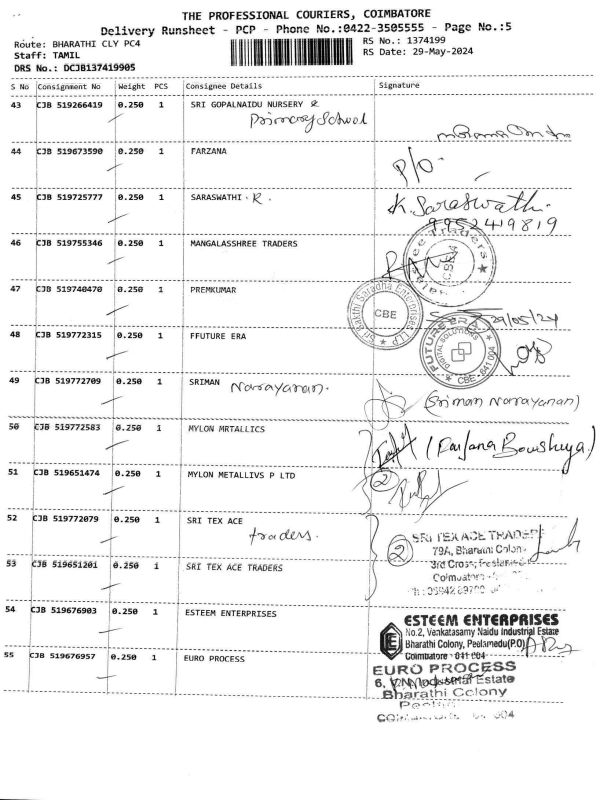 THE PROFESSIONAL COURIERS, COIMBATORE
Delivery Runsheet - PCP - Phone No.:0422-3505555 - Page No.:5
Route: BHARATHI CLY PC4
RS No.: 1374199
Staff: TAMIL
RS Date: 29-May-2024
DRS No.: DCJB137419905
S No Consignment No Weight PCS Consignee Details Signature
43 CJB 519266419 0.250 1 SRI GOPALNAIDU NURSERY &
Primary School
44 CJB 519673590 0.250 1 FARZANA
P/O.
45 CJB 519725777 0.250 1 SARASWATHI . R. K. Saraswathi.
9952419819
46 CJB 519755346 0.250 1 MANGALASSHREE TRADERS
CBE-4
47 CJB 519740470 0.250 1 PREMKUMAR
Sri Sakthi Saradha Enterprises LLP
CBE
29/05/24
48 CJB 519772315 0.250 1 FFUTURE ERA
FUTURE ERA
DIGITAL SOLUTIONS
CBE - 641 004
49 CJB 519772709 0.250 1 SRIMAN Narayanan.
(Sriman Narayanan)
50 CJB 519772583 0.250 1 MYLON MRTALLICS
51 CJB 519651474 0.250 1 MYLON METALLIVS P LTD
2
52 CJB 519772079 0.250 1 SRI TEX ACE
traders.
SRI TEX ACE TRADERS
2
79A, Bharathi Colony
3rd Cross, Peelamedu
Coimbatore
53 CJB 519651201 0.250 1 SRI TEX ACE TRADERS
54 CJB 519676903 0.250 1 ESTEEM ENTERPRISES
ESTEEM ENTERPRISES
No.2, Venkatasamy Naidu Industrial Estate
Bharathi Colony, Peelamedu(P.O)
Coimbatore - 641 004
55 CJB 519676957 0.250 1 EURO PROCESS
EURO PROCESS
6, Industrial Estate
Bharathi Colony